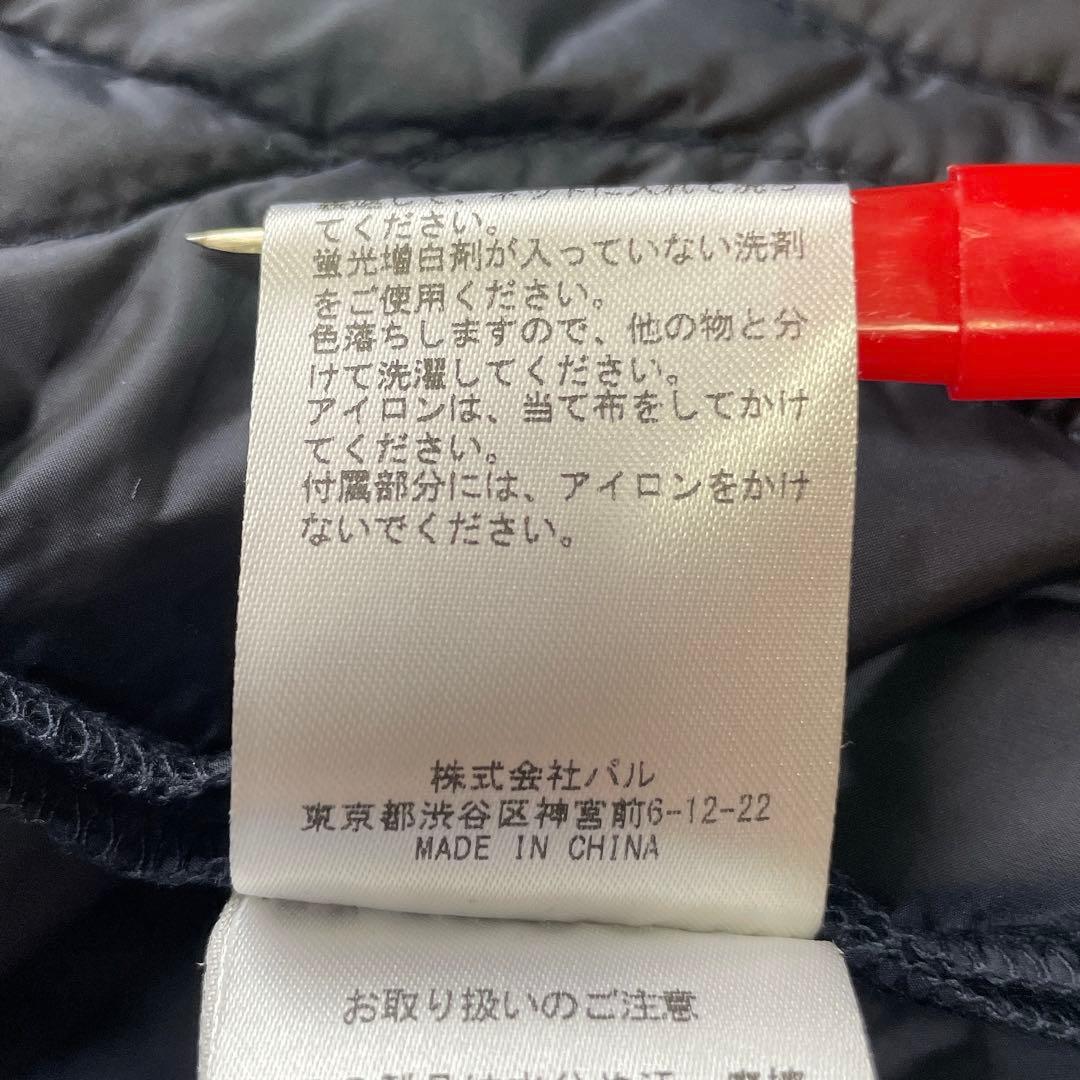 てください。
蛍光増白剤が入っていない洗剤
をご使用ください。
色落ちしますので、他の物と分
けて洗濯してください。
アイロンは、当て布をしてかけ
てください。
付属部分には、アイロンをかけ
ないでください。
株式会社パル
東京都渋谷区神宮前6-12-22
MADE IN CHINA
お取り扱いのご注意